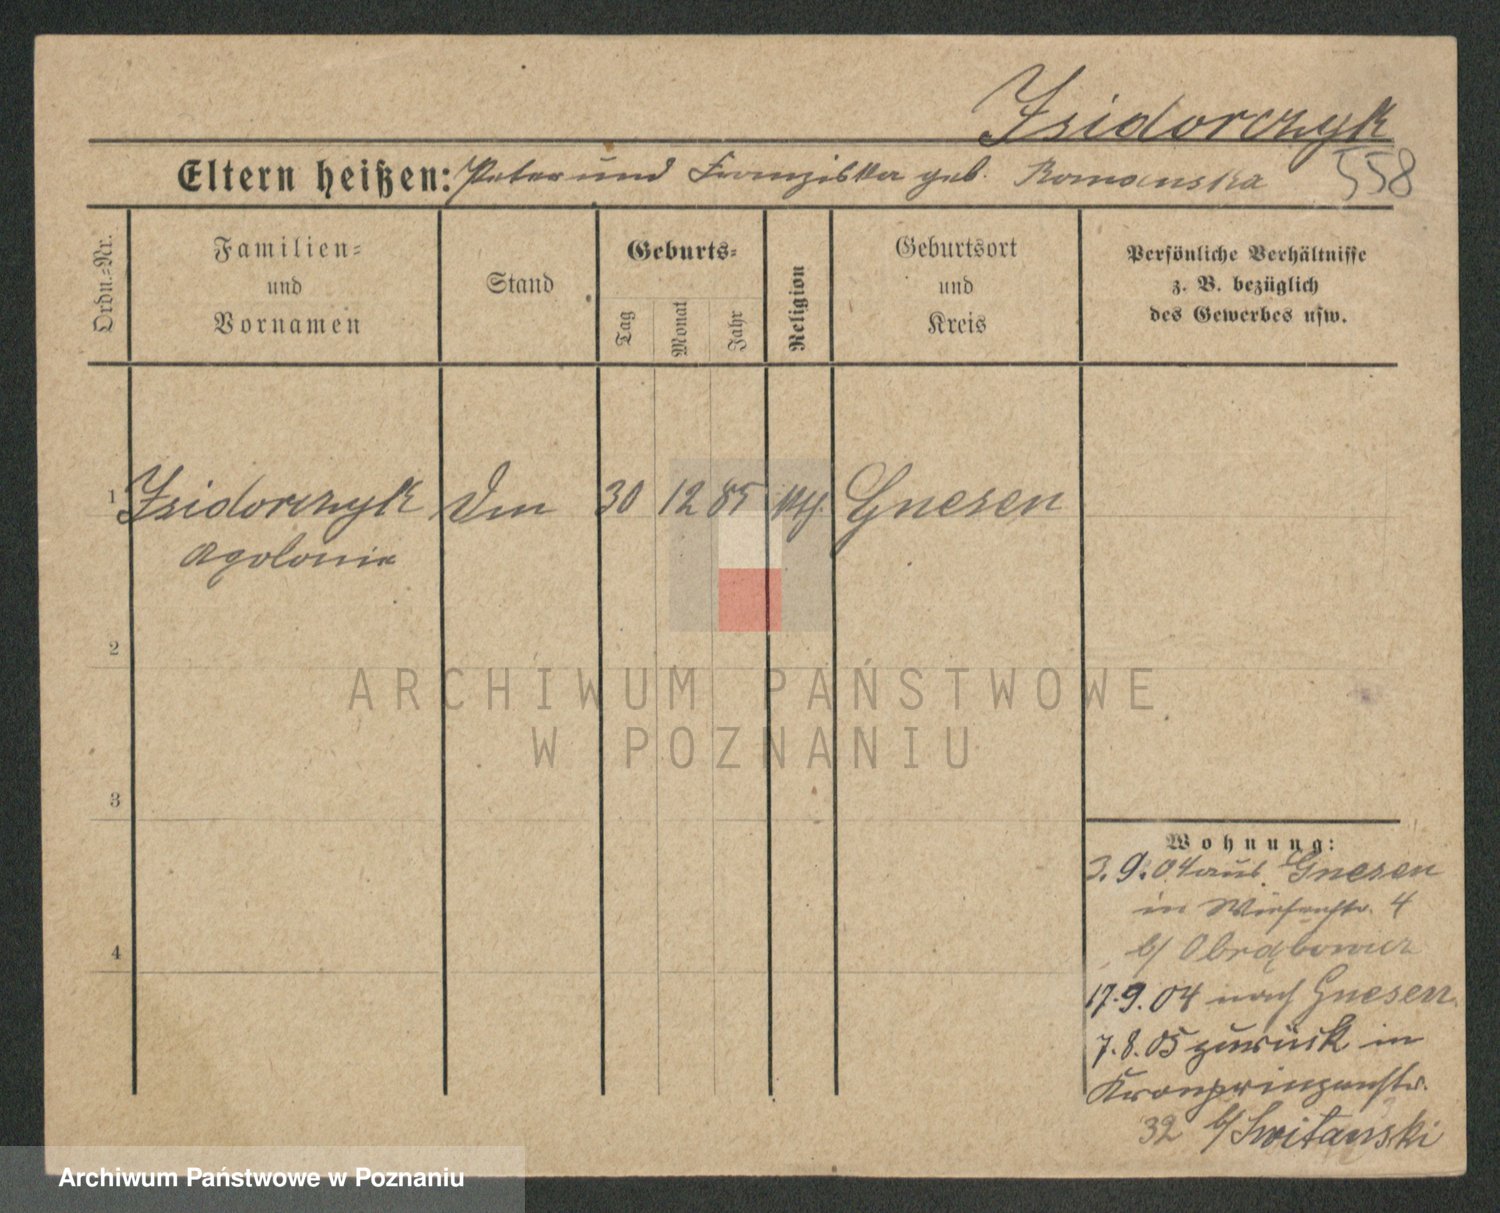 Izidorczyk
558
Eltern heißen: Peter und Franziska geb. Romanska
Ordn.=Nr.
Familien=
und
Vornamen
Stand
Geburts=
Tag
Monat
Jahr
Religion
Geburtsort
und
Kreis
Persönliche Verhältnisse
z. B. bezüglich
des Gewerbes usw.
1 Izidorczyk 30 12 85 kth. Gnesen
Apolonia
2
3
4
Wohnung:
3.9.04 aus Gnesen
in Wiesenstr. 4
b/
17.9.04 nach Gnesen
7.8.05 zurück in
Kronprinzenstr.
32 b/ Switanski
ARCHIWUM PAŃSTWOWE
W POZNANIU
Archiwum Państwowe w Poznaniu